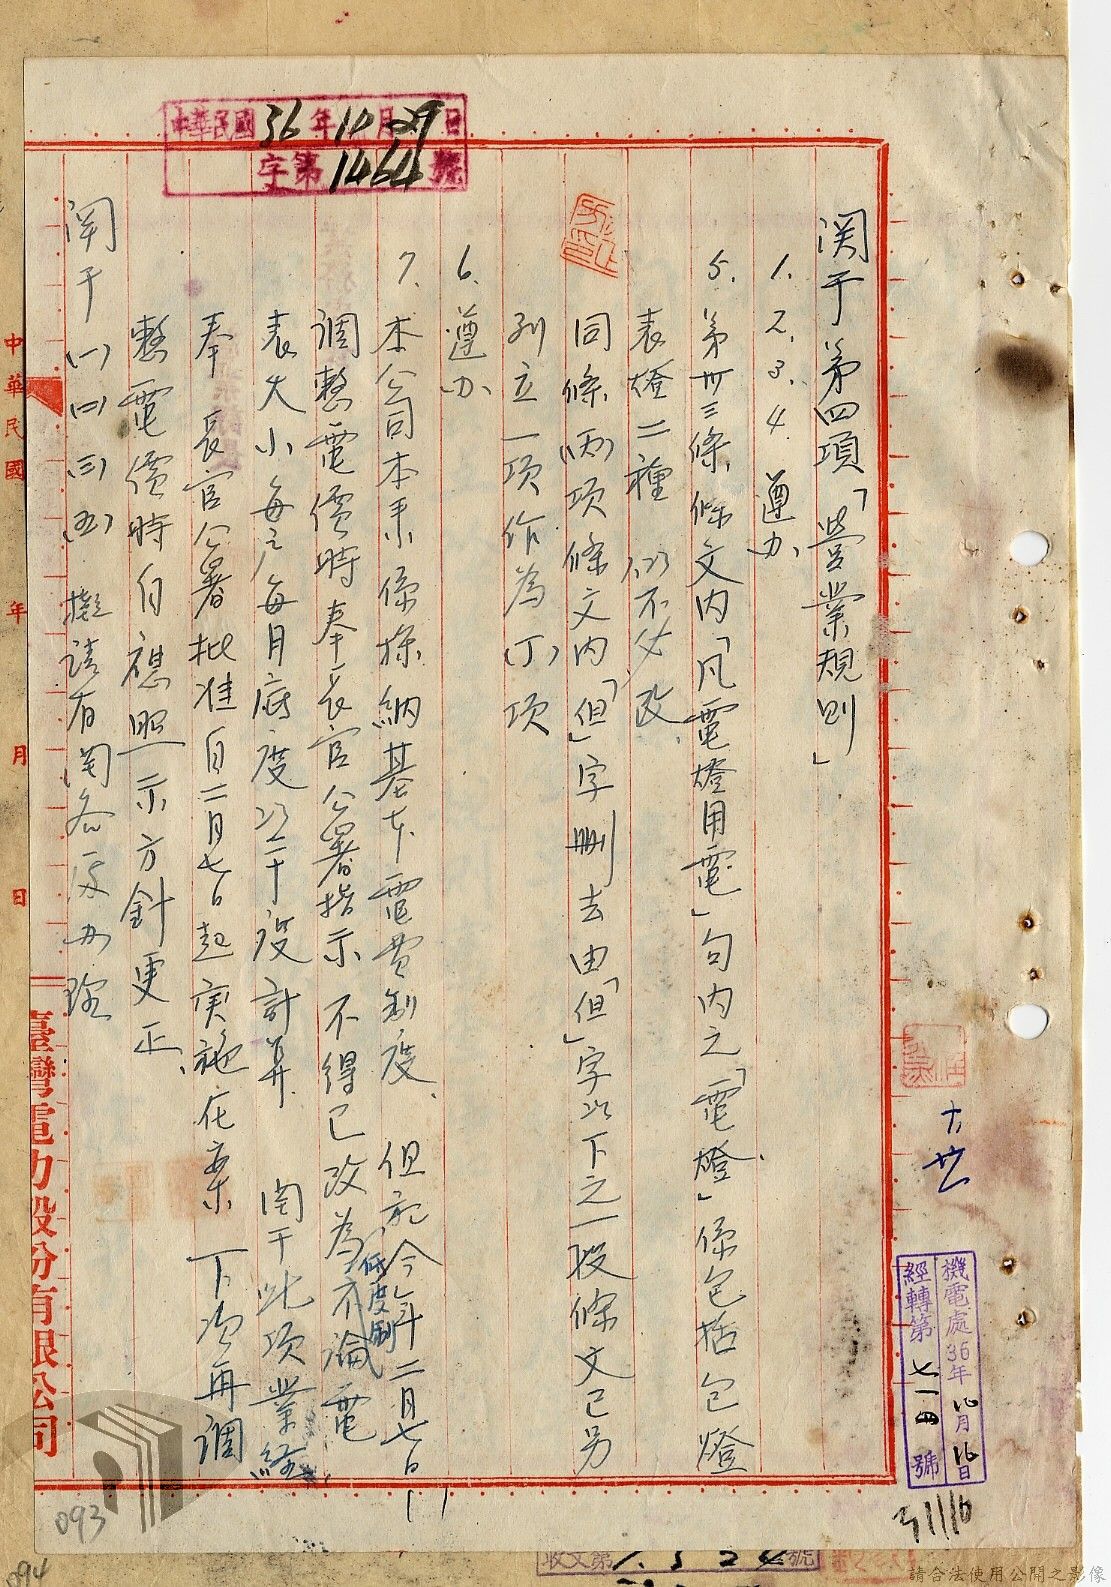 関于第四項「營業規則」
1. 2. 3. 4. 遵办
5. 第卅三條條文内「凡電燈用電」句内之「電燈」係包括包燈
表燈二種 似不必改
同條(丙)項條文内「但」字刪去由「但」字以下之一段條文已另
列立一項作為(丁)項
6. 遵办
7. 本公司本来係採納基本電費制度、但於今年二月七日
調整電價時奉長官公署指示不得已改為
底度制
不論電
表大小每户每月底度以二十度計算 関于此項業經
奉 長官公署批准自二月七日起実施在案 下次再調
整電價時自應照示方針更正、
関于(一)(四)(三)(五) 擬請有関各處办理
中華民國36年10月29日
字第1464號
中華民國 年 月 日
臺灣電力股份有限公司
機電處36年 月 日
經轉第七一四號
收文第 號
093
094
請合法使用公開之影像